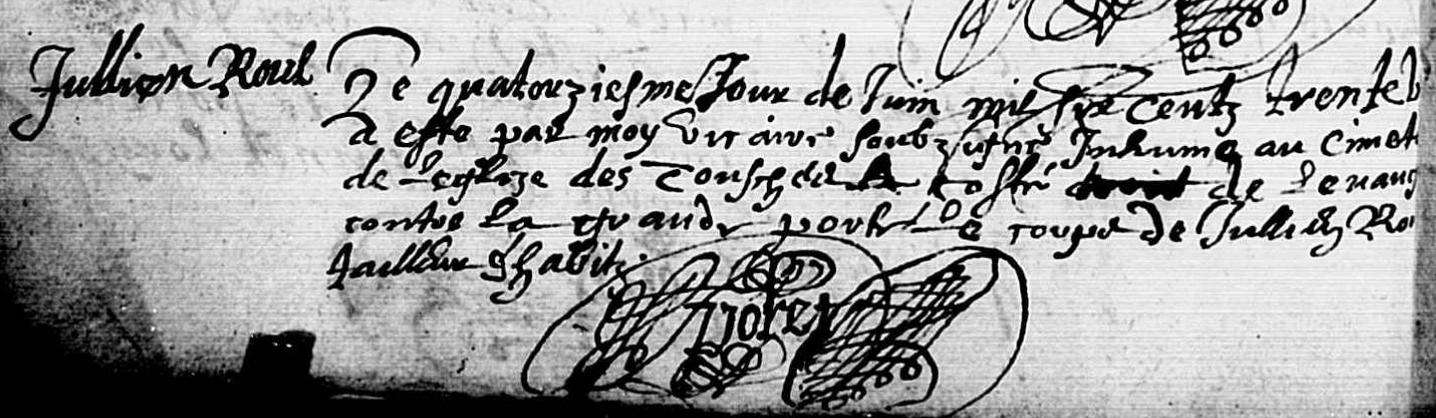 Jullien Roul
Le quatorziesme Jour de Juin mil six centz trente
a este par moy vicaire soubzsigné Inhumé au cimet
de l'eglize des Tousches costé de l'evang
contre la grande porte le corps de Jullien Ro
tailleur d'habitz